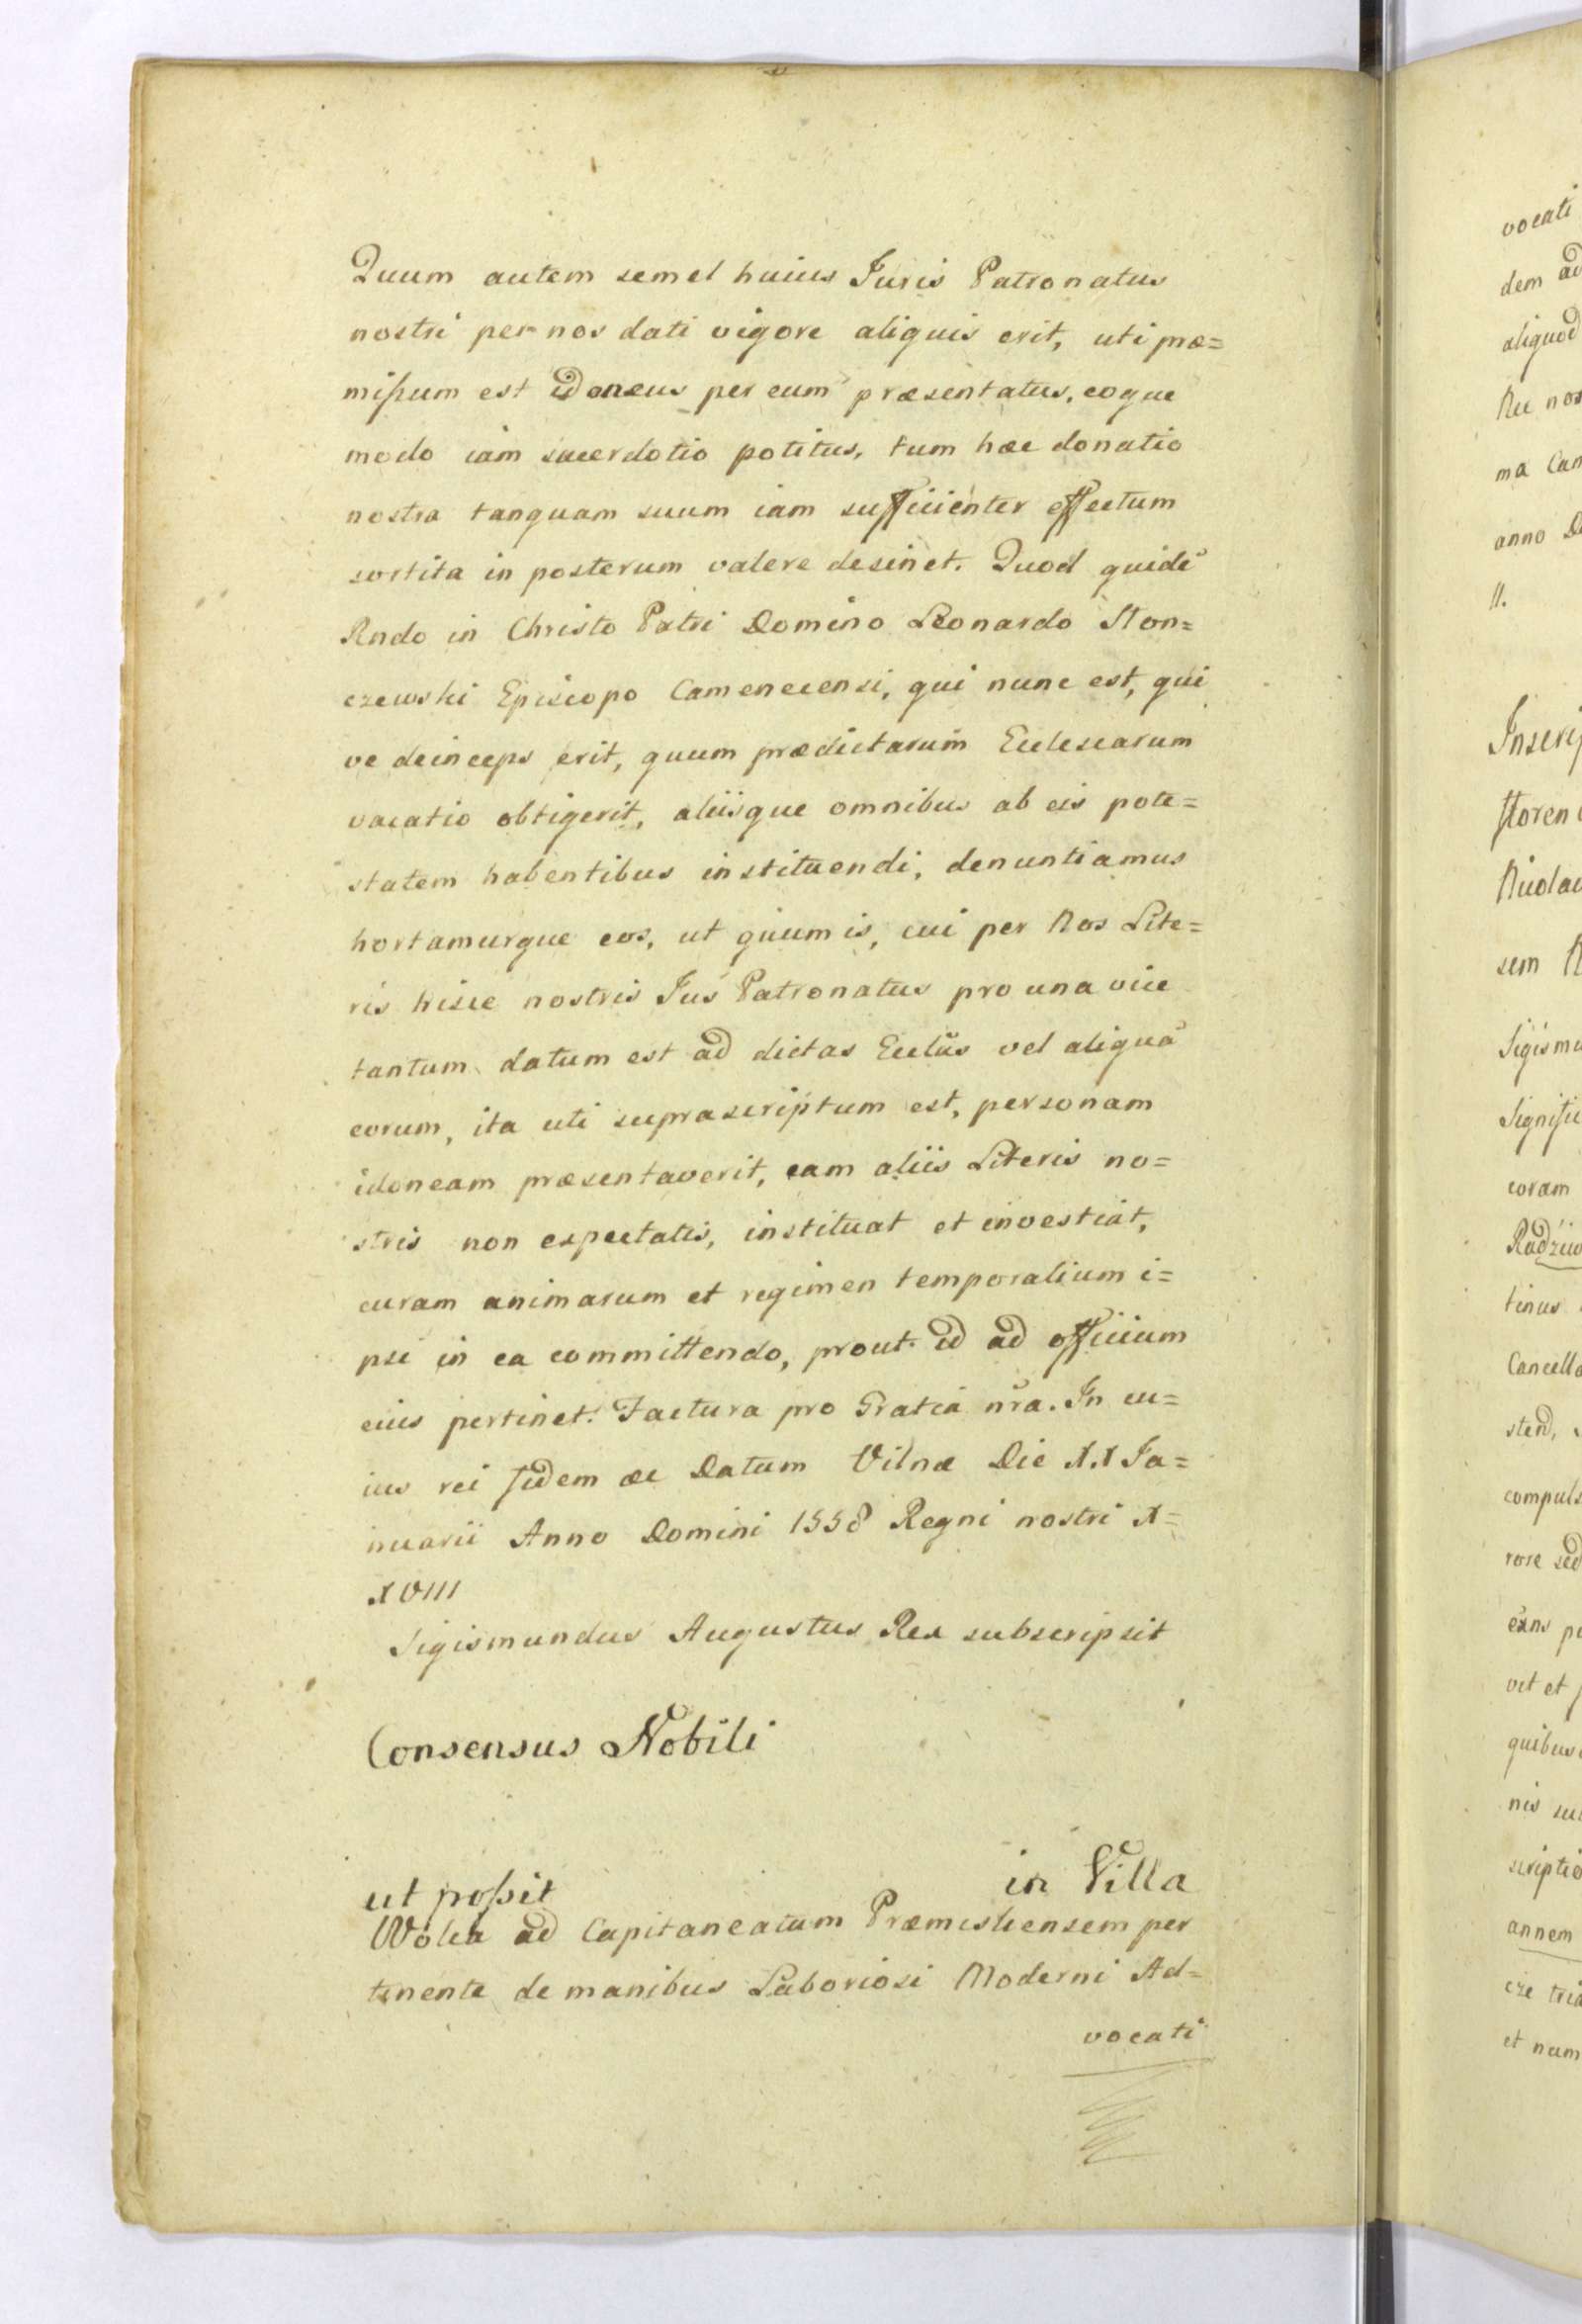 Quum autem semel huius Juris Patronatus
nostri per nos dati vigore aliquis erit, uti præ=
mißum est idoneus per eum præsentatus, eoque
modo iam sacerdotio potitus, tum hæc donatio
nostra tanquam suum iam sufficienter effectum
sortita in posterum valere desinet. Quod quidẽ
Rndo in Christo Patri Domino Leonardo Slon=
czewski Episcopo Camenecensi, qui nunc est, qui
ve deinceps erit, quum prædictarum Ecclesiarum
vacatio obtigerit, aliisque omnibus ab eis pote=
statem habentibus instituendi, denuntiamus
hortamurque eos, ut quum is, cui per Nos Lite=
ris hisce nostris Jus Patronatus pro una vice
tantum datum est ad dictas Ecclãs vel aliquã
eorum, ita uti suprascriptum est, personam
idoneam præsentaverit, eam aliis Literis no=
stris non expectatis, instituat et investiat,
curam animarum et regimen temporalium i=
psi in ea committendo, prout id ad officium
eius pertinet. Factura pro Gratia nr̃a. In cu=
ius rei fidem æc Datum Vilnæ Die XX Ja=
nuarii Anno Domini 1558 Regni nostri X=
XVIII
Sigismundus Augustus Rex subscripsit
Consensus Nobili
ut poßit in Villa
Wolia ad Capitaneatum Præmisliensem per
tinente de manibus Laboriosi Moderni Ad=
vocati
vocati
dem ad
aliquod
Nec nos
ma Can
anno D
II.
Inscrip
Nicola
sem N
Sigismu
coram
Radziio
tinus
Cancella
stend,
compuls
rore sed
vit et
quibus
nis su
scriptio
annem
cze tria
et num